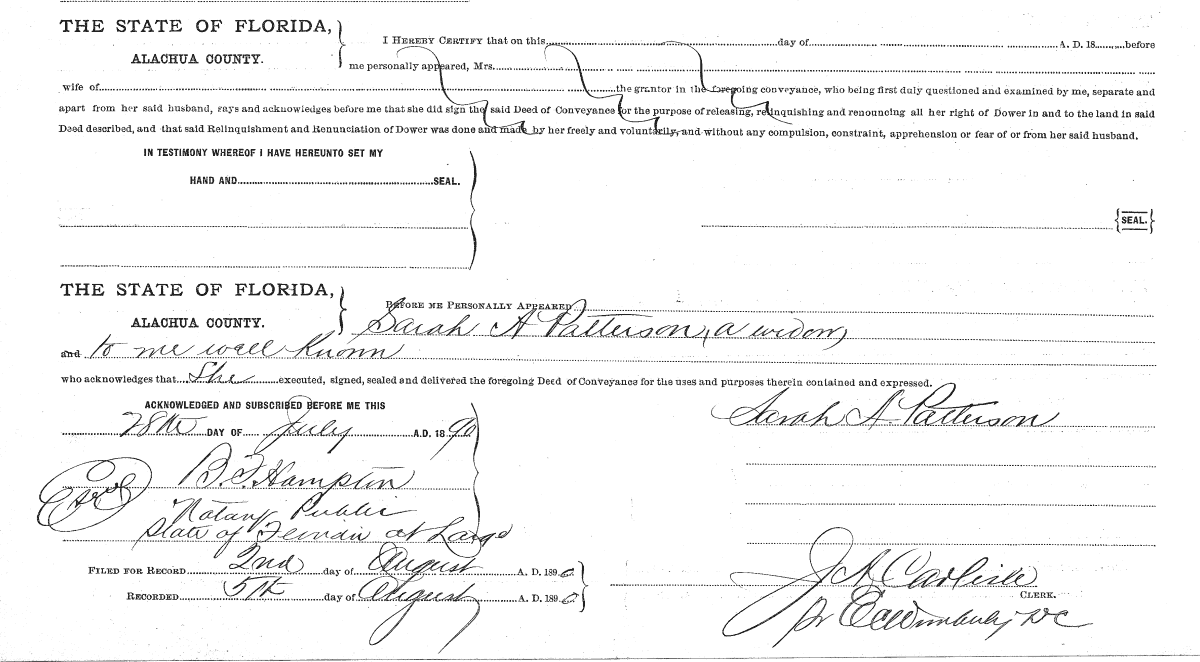 THE STATE OF FLORIDA,
ALACHUA COUNTY.
I HEREBY CERTIFY that on this day of A. D. 18 before
me personally appeared, Mrs.
wife of the grantor in the foregoing conveyance, who being first duly questioned and examined by me, separate and
apart from her said husband, says and acknowledges before me that she did sign the said Deed of Conveyance for the purpose of releasing, relinquishing and renouncing all her right of Dower in and to the land in said
Deed described, and that said Relinquishment and Renunciation of Dower was done and made by her freely and voluntarily, and without any compulsion, constraint, apprehension or fear of or from her said husband.
IN TESTIMONY WHEREOF I HAVE HEREUNTO SET MY
HAND AND SEAL.
SEAL.
THE STATE OF FLORIDA,
ALACHUA COUNTY.
BEFORE ME PERSONALLY APPEARED
Sarah A Patterson, a widow,
and to me well known
who acknowledges that She executed, signed, sealed and delivered the foregoing Deed of Conveyance for the uses and purposes therein contained and expressed.
ACKNOWLEDGED AND SUBSCRIBED BEFORE ME THIS
28th DAY OF July A.D. 18 90
Sarah A Patterson
B. F. Hampton
Notary Public
State of at Large
FILED FOR RECORD 2nd day of August A. D. 189 0
RECORDED 5th day of August A. D. 189 0
J A Carlisle
CLERK.
pr DC